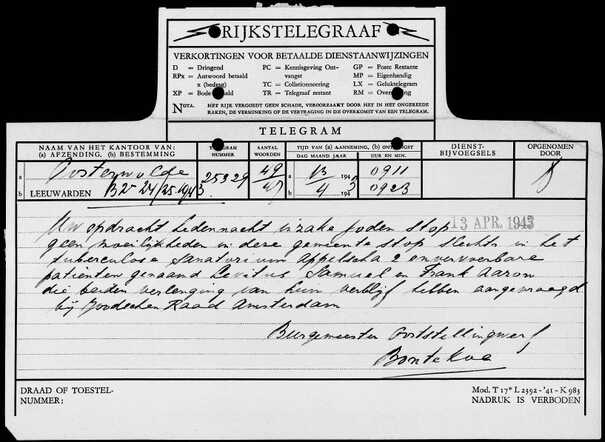 RIJKSTELEGRAAF
VERKORTINGEN VOOR BETAALDE DIENSTAANWIJZINGEN
D = Dringend
RPx = Antwoord betaald
x (bedrag)
XP = Bode betaald
PC = Kennisgeving Ont-
vangst
TC = Collationneering
TR = Telegraaf restant
GP = Poste Restante
MP = Eigenhandig
LX = Gelukstelegram
RM =
NOTA. HET RIJK VERGOEDT GEEN SCHADE, VEROORZAAKT DOOR HET IN HET ONGEREEDE
RAKEN, DE VERMINKING OF DE VERTRAGING IN DE OVERKOMST VAN EEN TELEGRAM.
TELEGRAM
NAAM VAN HET KANTOOR VAN:
(a) AFZENDING, (b) BESTEMMING
TELEGRAM
NUMMER
AANTAL
WOORDEN
TIJD VAN (a) AANNEMING, (b) ONTVANGST
DAG MAAND JAAR
UUR EN MIN.
DIENST-
BIJVOEGSELS
OPGENOMEN
DOOR
a Oosterwolde 25329 49 a 13 194 0911
b LEEUWARDEN 47 b 4 194 0923
13 APR. 1943
Uw opdracht hedennacht inzake joden stop
geen moeilijkheden in deze gemeente stop slechts in het
tuberculose Sanatorium Appelscha 2 onvervoerbare
patiënten genaamd Levitus Samuel en Frank Aaron
die beiden verlenging van hun verblijf hebben aangevraagd
bij Joodschen Raad Amsterdam
Burgemeester Ooststellingwerf
Bontekoe
DRAAD OF TOESTEL-
NUMMER:
Mod. T 17* L 2392 - '41 - K 983
NADRUK IS VERBODEN